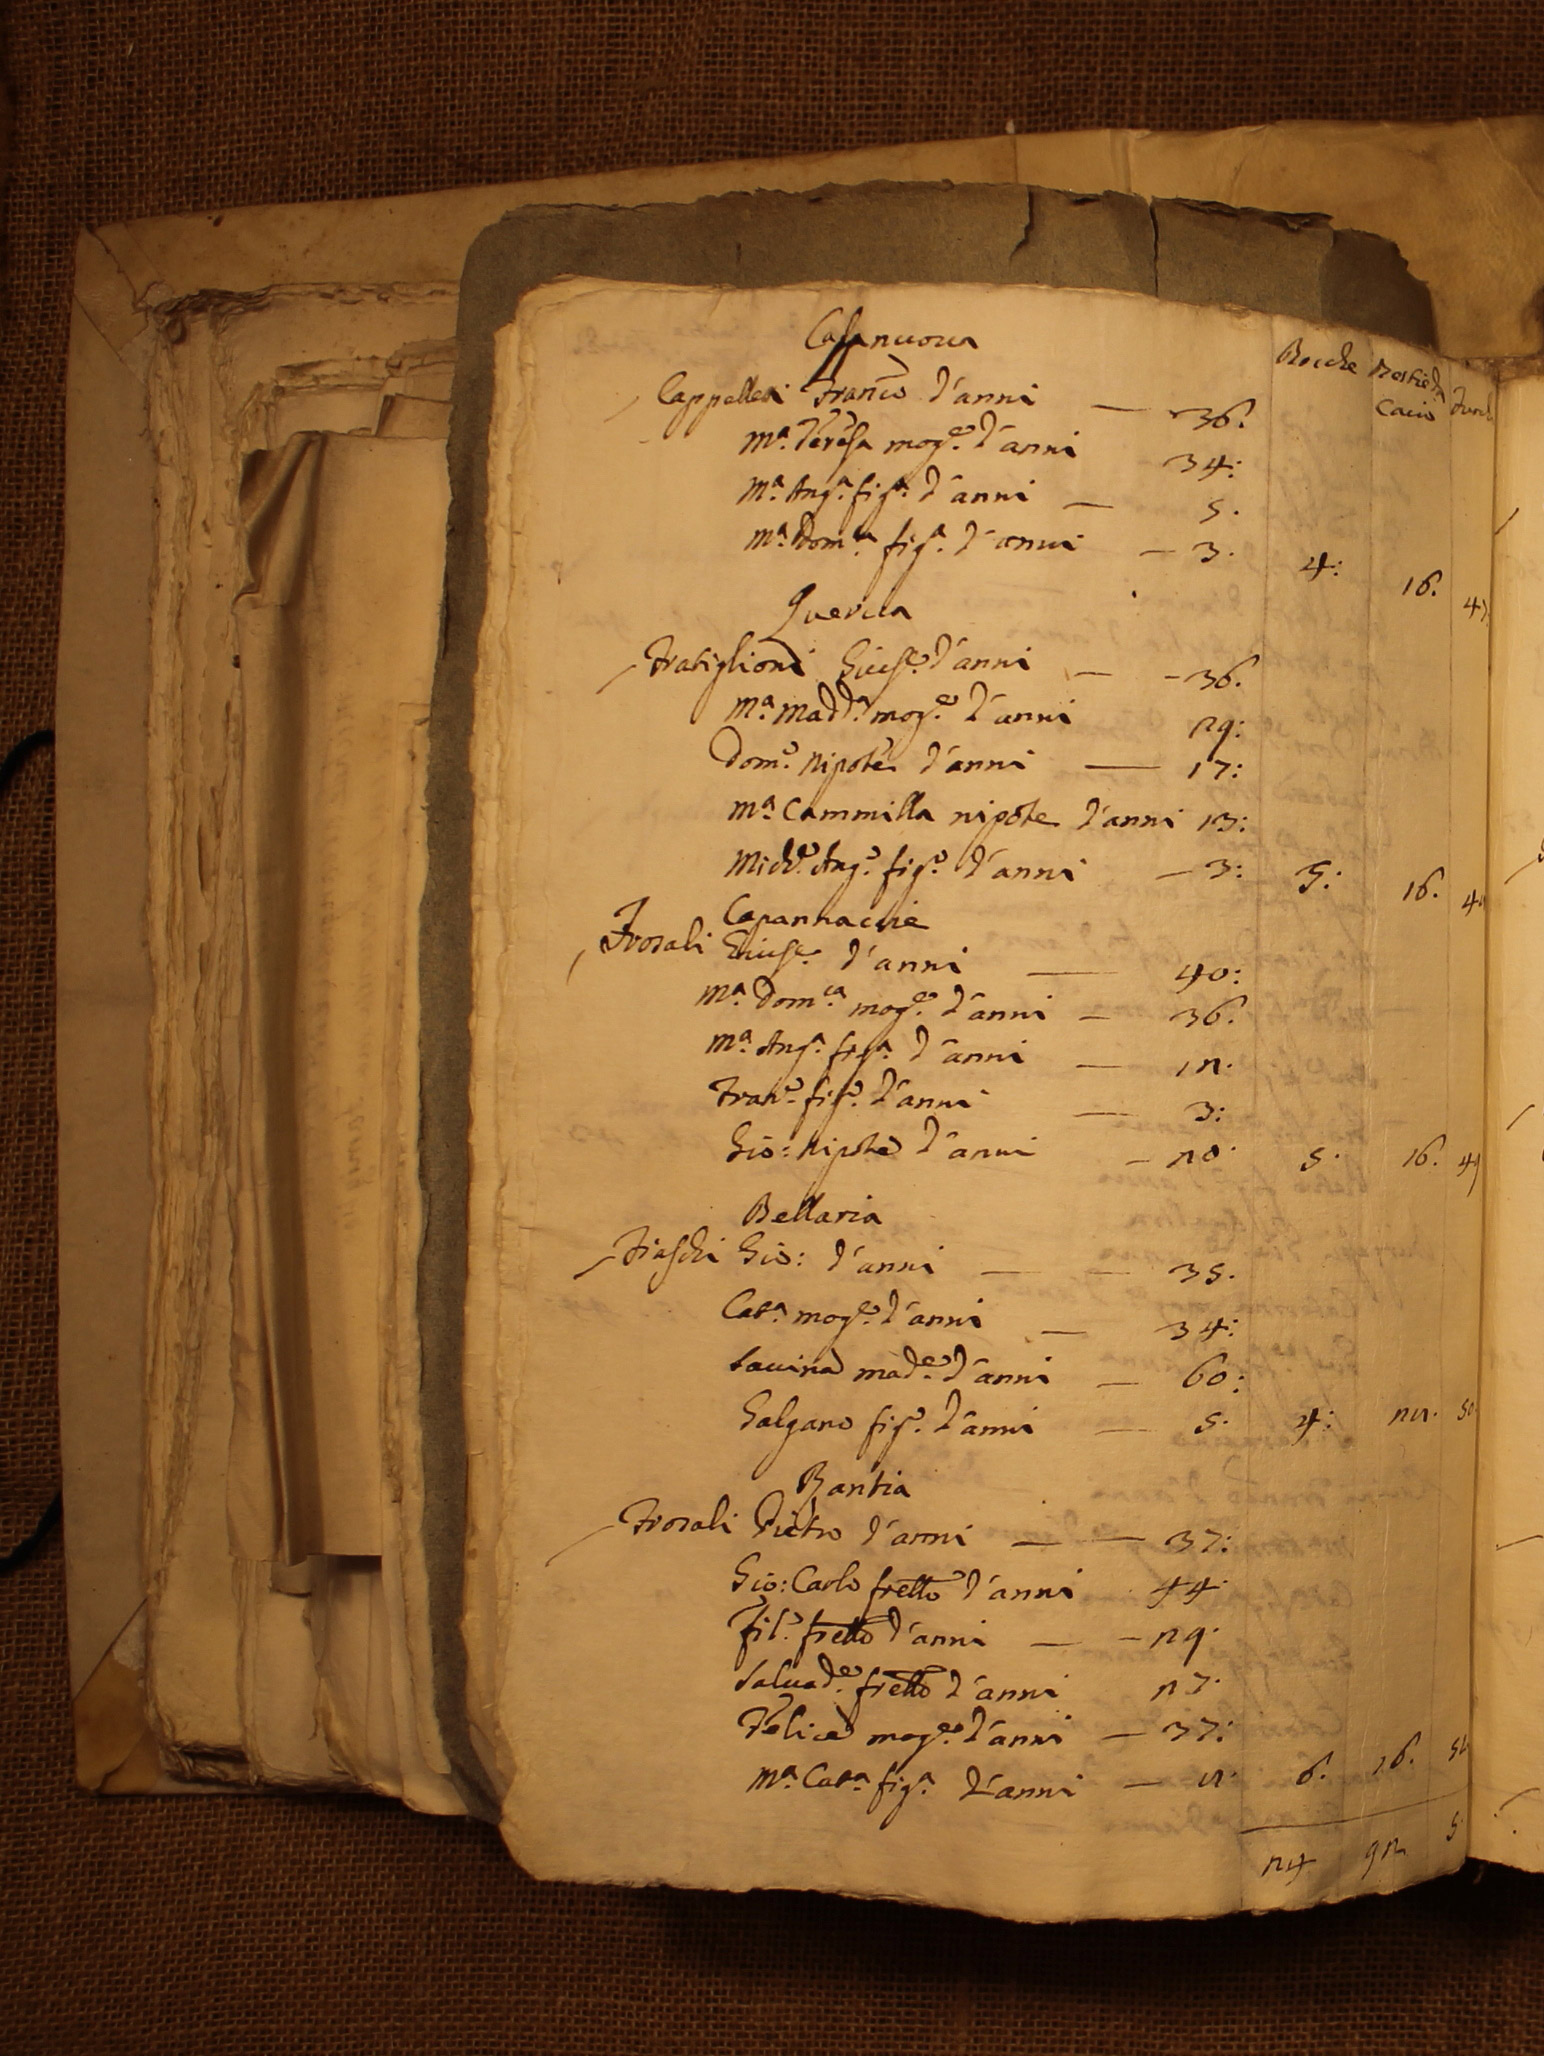 Casanuova
Bocche Bestie da Cacio
Cappelletti Fran.co d'anni — 36.
M.a Teresa mog.e d'anni 34:
M.a Ang.a fig.a d'anni — 5.
M.a Dom.ca fig.a d'anni — 3. 4: 16.
Quercia
Fratiglioni Gius.e d'anni — 36.
M.a Madd.a mog.e d'anni 29:
Dom.o nipote d'anni — 17:
M.a Cammilla nipote d'anni 13:
Mich.e Ang.o fig.o d'anni — 3: 5: 16.
Capannacie
Frosali Gius.e d'anni — 40:
M.a Dom.ca mog.e d'anni — 36.
M.a Ang.a fig.a d'anni — 12.
Fran.o fig.o d'anni — 3:
Gio: nipote d'anni — 20. 5. 16.
Bellaria
Fiaschi Gio: d'anni — 35.
Cat.a mog.e d'anni — 34:
Savina mad.e d'anni — 60:
Galgano fig.o d'anni — 5. 4:
Bantia
Frosali Pietro d'anni — 37:
Gio: Carlo fretto d'anni 44.
Fil.o fretto d'anni — 29.
Salvad.e fretto d'anni 27.
Felice mog.e d'anni — 37:
M.a Cat.a fig.a d'anni — 6.
24 92